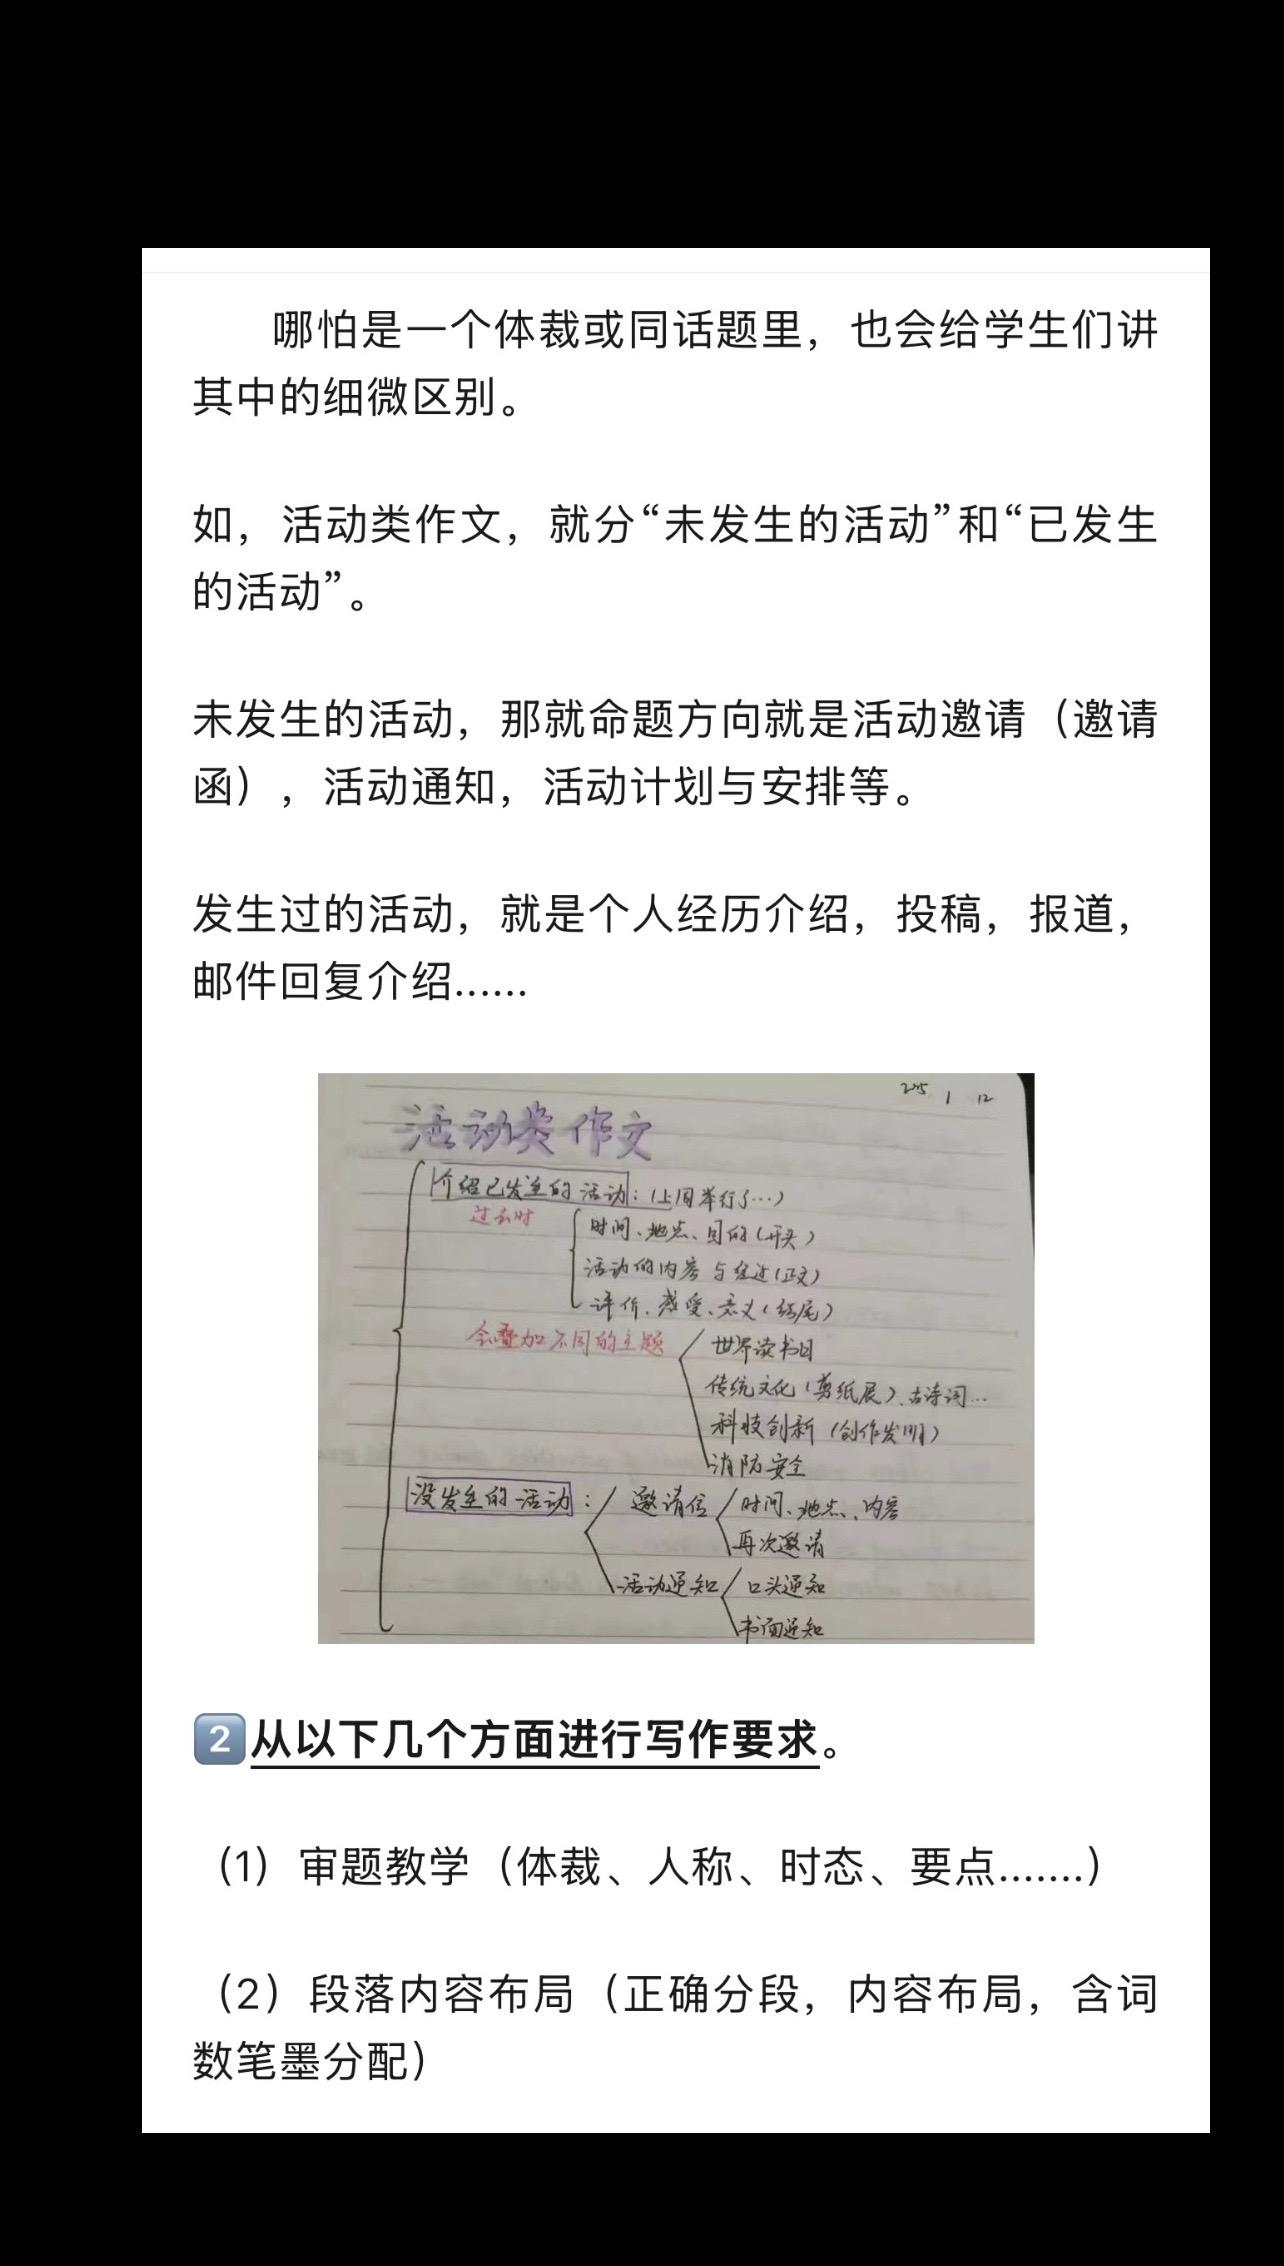 哪怕是一个体裁或同话题里，也会给学生们讲
其中的细微区别。
如，活动类作文，就分“未发生的活动”和“已发生
的活动”。
未发生的活动，那就命题方向就是活动邀请（邀请
函），活动通知，活动计划与安排等。
发生过的活动，就是个人经历介绍，投稿，报道，
邮件回复介绍......
1 12
活动类作文
介绍已发生的活动：（上周举行了…）
过去时
时间、地点、目的（开头）
活动的内容与经过（正文）
评价、感受、意义（结尾）
会叠加不同的主题
世界读书日
传统文化（剪纸展）、古诗词…
科技创新（创作发明）
消防安全
没发生的活动：
邀请信
时间、地点、内容
再次邀请
活动通知
口头通知
书面通知
2从以下几个方面进行写作要求。
（1）审题教学（体裁、人称、时态、要点.......）
（2）段落内容布局（正确分段，内容布局，含词
数笔墨分配）